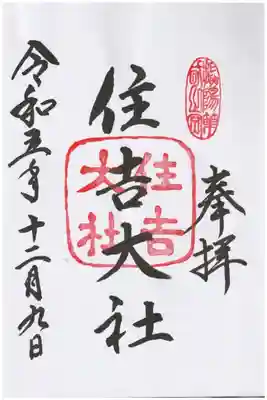 奉拝
住吉大社
住吉
大社
令和五年十二月九日